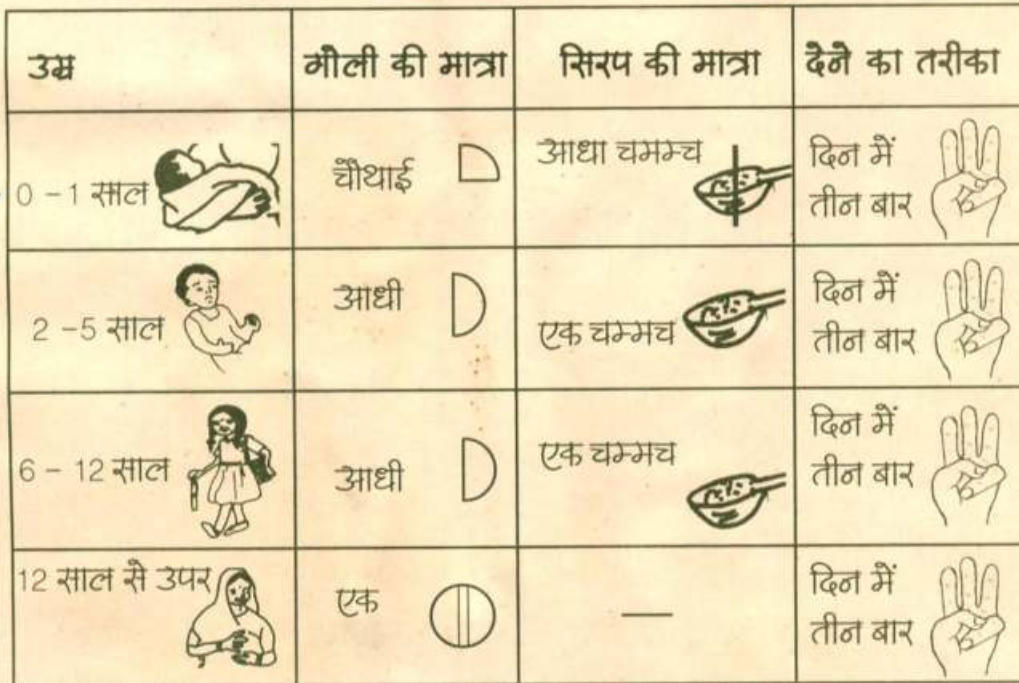 उम्र गोली की मात्रा सिरप की मात्रा देने का तरीका
0 - 1 साल चौथाई आधा चमम्च दिन में
तीन बार
2 - 5 साल आधी एक चम्मच दिन में
तीन बार
6 - 12 साल आधी एक चम्मच दिन में
तीन बार
12 साल से उपर एक — दिन में
तीन बार